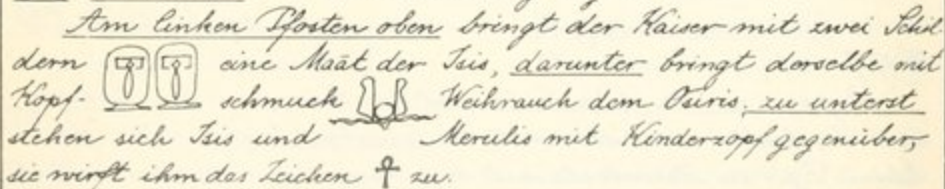 Am linken Pfosten oben bringt der Kaiser mit zwei Schil
dern eine Maāt der Isis, darunter bringt derselbe mit
Kopf- schmuck Weihrauch dem Osiris, zu unterst
stehen sich Isis und Merulis mit Kinderzopf gegenüber,
sie wirft ihm das Zeichen ☥ zu.